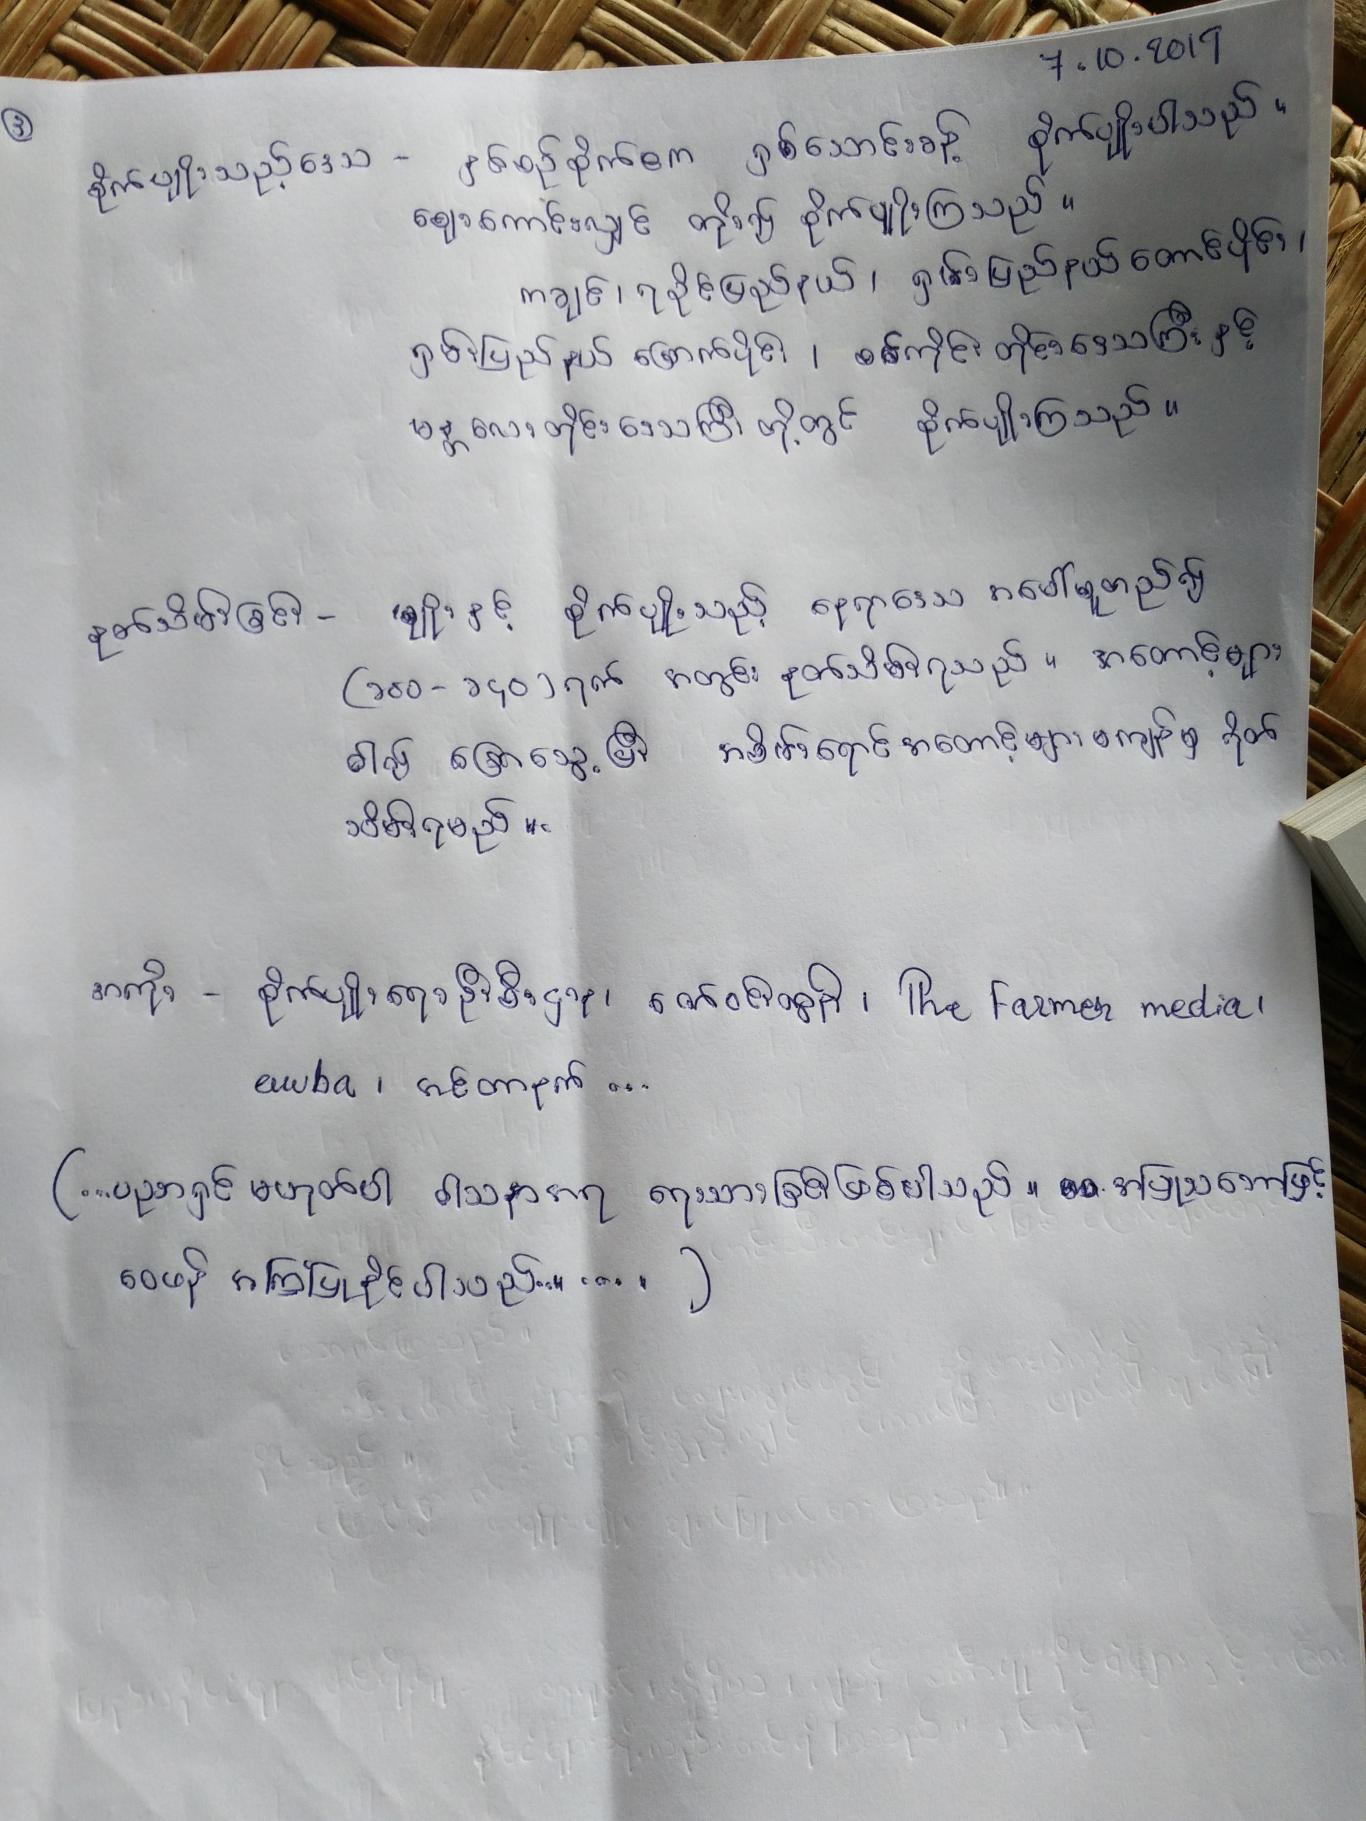 7.10.2019
③
စိုက်ပျိုးသည့်ဒေသ - နှစ်စဉ်စိုက်ဧက ရှစ်သောင်းခန့် စိုက်ပျိုးပါသည်။
ဈေးကောင်းလျှင် တိုး၍ စိုက်ပျိုးကြသည်။
ကချင်၊ ရခိုင်ပြည်နယ်၊ ရှမ်းပြည်နယ်တောင်ပိုင်း၊
ရှမ်းပြည်နယ်မြောက်ပိုင်း၊ စစ်ကိုင်းတိုင်းဒေသကြီးနှင့်
မန္တလေးတိုင်းဒေသကြီးတို့တွင် စိုက်ပျိုးကြသည်။
နုတ်သိမ်းခြင်း - မျိုးနှင့် စိုက်ပျိုးသည့် နေရာဒေသ အပေါ်မူတည်၍
(၁၀၀-၁၄၀)ရက် အတွင်း နုတ်သိမ်းရသည်။ အတောင့်များ
ဝါ၍ ခြောက်သွေ့ပြီး အစိမ်းရောင်အတောင့်များမကျန်မှ နုတ်
သိမ်းရမည်။
အကိုး - စိုက်ပျိုးရေးဦးစီးဌာန၊ ဇော်ဝင်းထွန်း၊ The Farmer media၊
auwba၊ အင်တာနက် ...
(...ပညာရှင်မဟုတ်ပါ ဝါသနာအရ ရေးသားခြင်းဖြစ်ပါသည်။ အပြုသဘောဖြင့်
ဝေဖန် အကြံပြုနိုင်ပါသည်..။ ....။ )